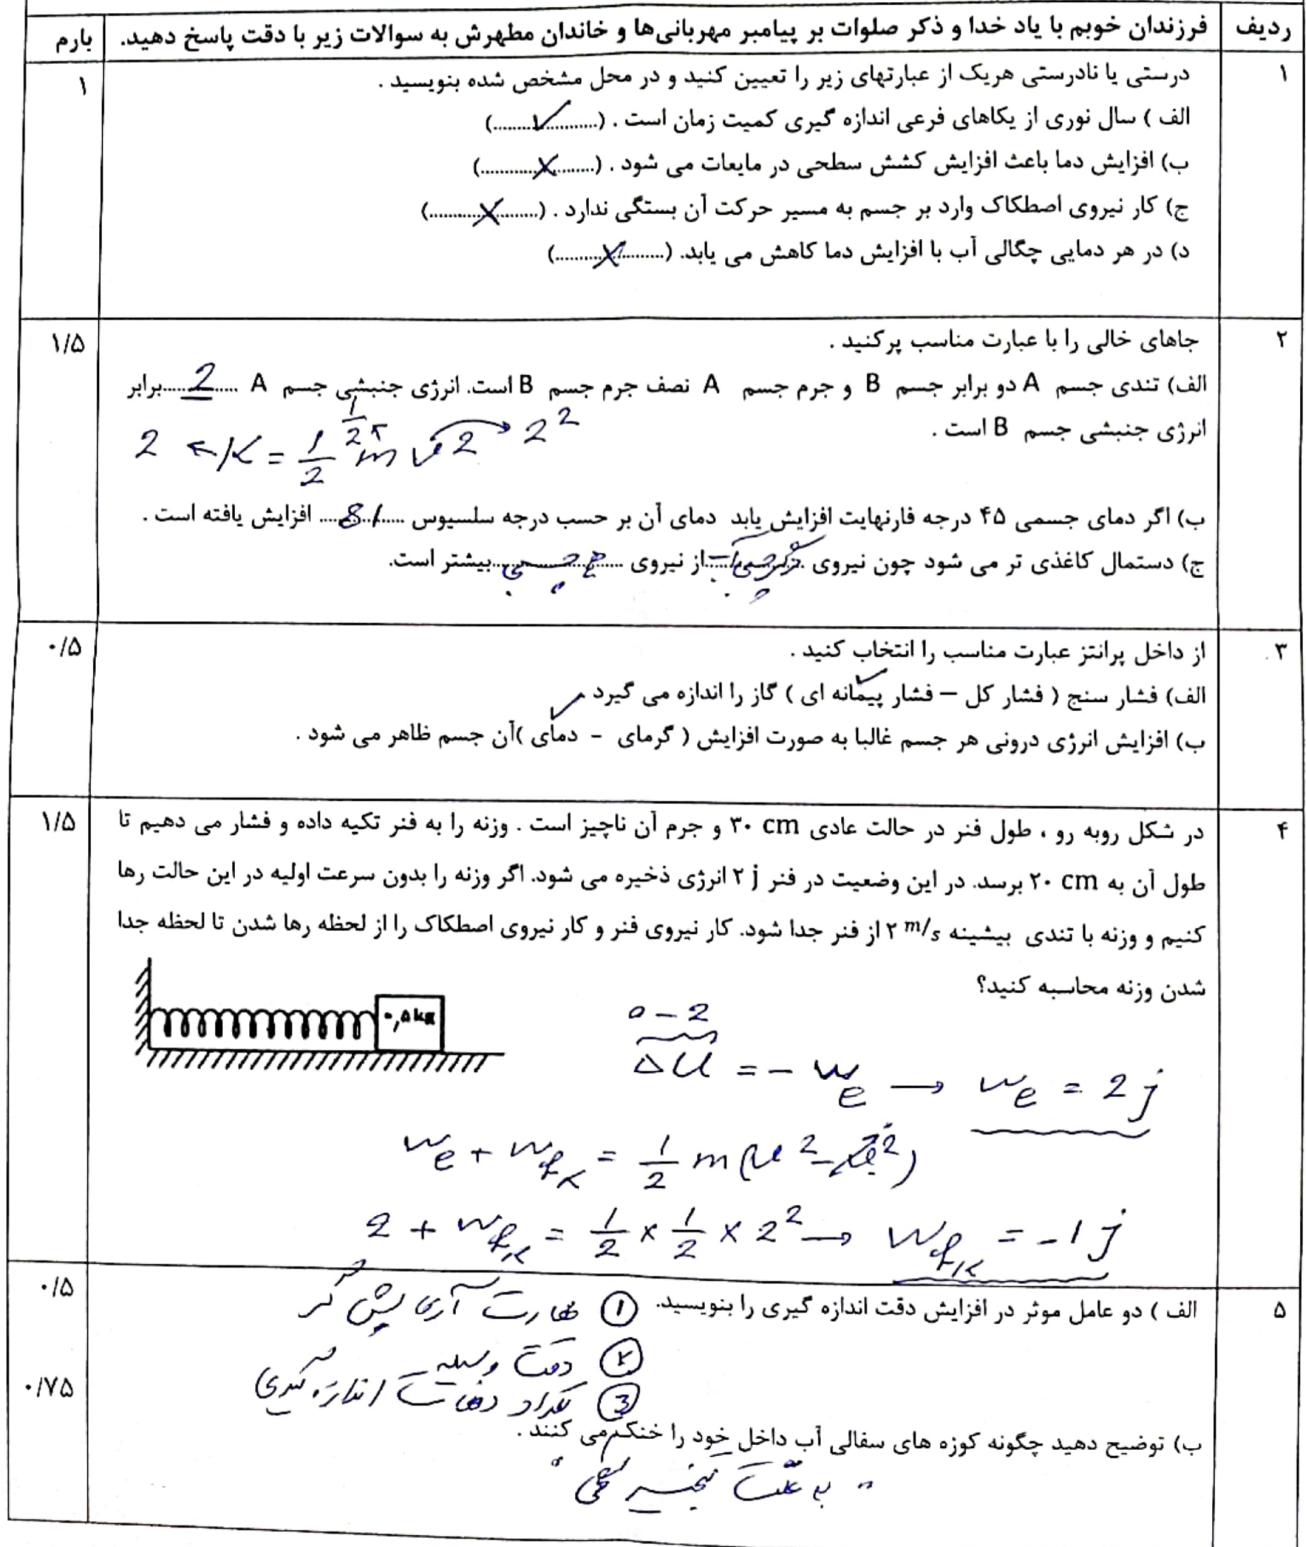 ردیف فرزندان خوبم با یاد خدا و ذکر صلوات بر پیامبر مهربانی‌ها و خاندان مطهرش به سوالات زیر با دقت پاسخ دهید. بارم
۱ درستی یا نادرستی هریک از عبارتهای زیر را تعیین کنید و در محل مشخص شده بنویسید . ۱
الف ) سال نوری از یکاهای فرعی اندازه گیری کمیت زمان است . (........✓..........)
ب) افزایش دما باعث افزایش کشش سطحی در مایعات می شود . (........X..........)
ج) کار نیروی اصطکاک وارد بر جسم به مسیر حرکت آن بستگی ندارد . (........X..........)
د) در هر دمایی چگالی آب با افزایش دما کاهش می یابد. (........X..........)
۲ جاهای خالی را با عبارت مناسب پرکنید . ۱/۵
الف) تندی جسم A دو برابر جسم B و جرم جسم A نصف جرم جسم B است. انرژی جنبشی جسم A ......2......برابر
انرژی جنبشی جسم B است .
2 ← K = 1/2 m v 2 → 2^2
1/2
ب) اگر دمای جسمی ۴۵ درجه فارنهایت افزایش یابد دمای آن بر حسب درجه سلسیوس ............ افزایش یافته است .
ج) دستمال کاغذی تر می شود چون نیروی ............ از نیروی ............ بیشتر است.
۳ از داخل پرانتز عبارت مناسب را انتخاب کنید . ۰/۵
الف) فشار سنج ( فشار کل – فشار پیمانه ای ✓ ) گاز را اندازه می گیرد
ب) افزایش انرژی درونی هر جسم غالبا به صورت افزایش ( گرمای - دمای ✓ )آن جسم ظاهر می شود .
۴ در شکل روبه رو ، طول فنر در حالت عادی ۳۰ cm و جرم آن ناچیز است . وزنه را به فنر تکیه داده و فشار می دهیم تا ۱/۵
طول آن به ۲۰ cm برسد. در این وضعیت در فنر ۲ j انرژی ذخیره می شود. اگر وزنه را بدون سرعت اولیه در این حالت رها
کنیم و وزنه با تندی بیشینه ۲ m/s از فنر جدا شود. کار نیروی فنر و کار نیروی اصطکاک را از لحظه رها شدن تا لحظه جدا
شدن وزنه محاسبه کنید؟
۰,۵ kg
0 - 2
ΔU = - We → We = 2 j
We + Wfk = 1/2 m (v^2 - v^2)
2 + Wfk = 1/2 × 1/2 × 2^2 → Wfk = -1 j
۵ الف ) دو عامل موثر در افزایش دقت اندازه گیری را بنویسید. ① مهارت آزمایش گر ۰/۵
② دقت وسیله
③ تعداد دفعات اندازه گیری ۰/۷۵
ب) توضیح دهید چگونه کوزه های سفالی آب داخل خود را خنک می کنند .
" به علت تبخیر سطحی "